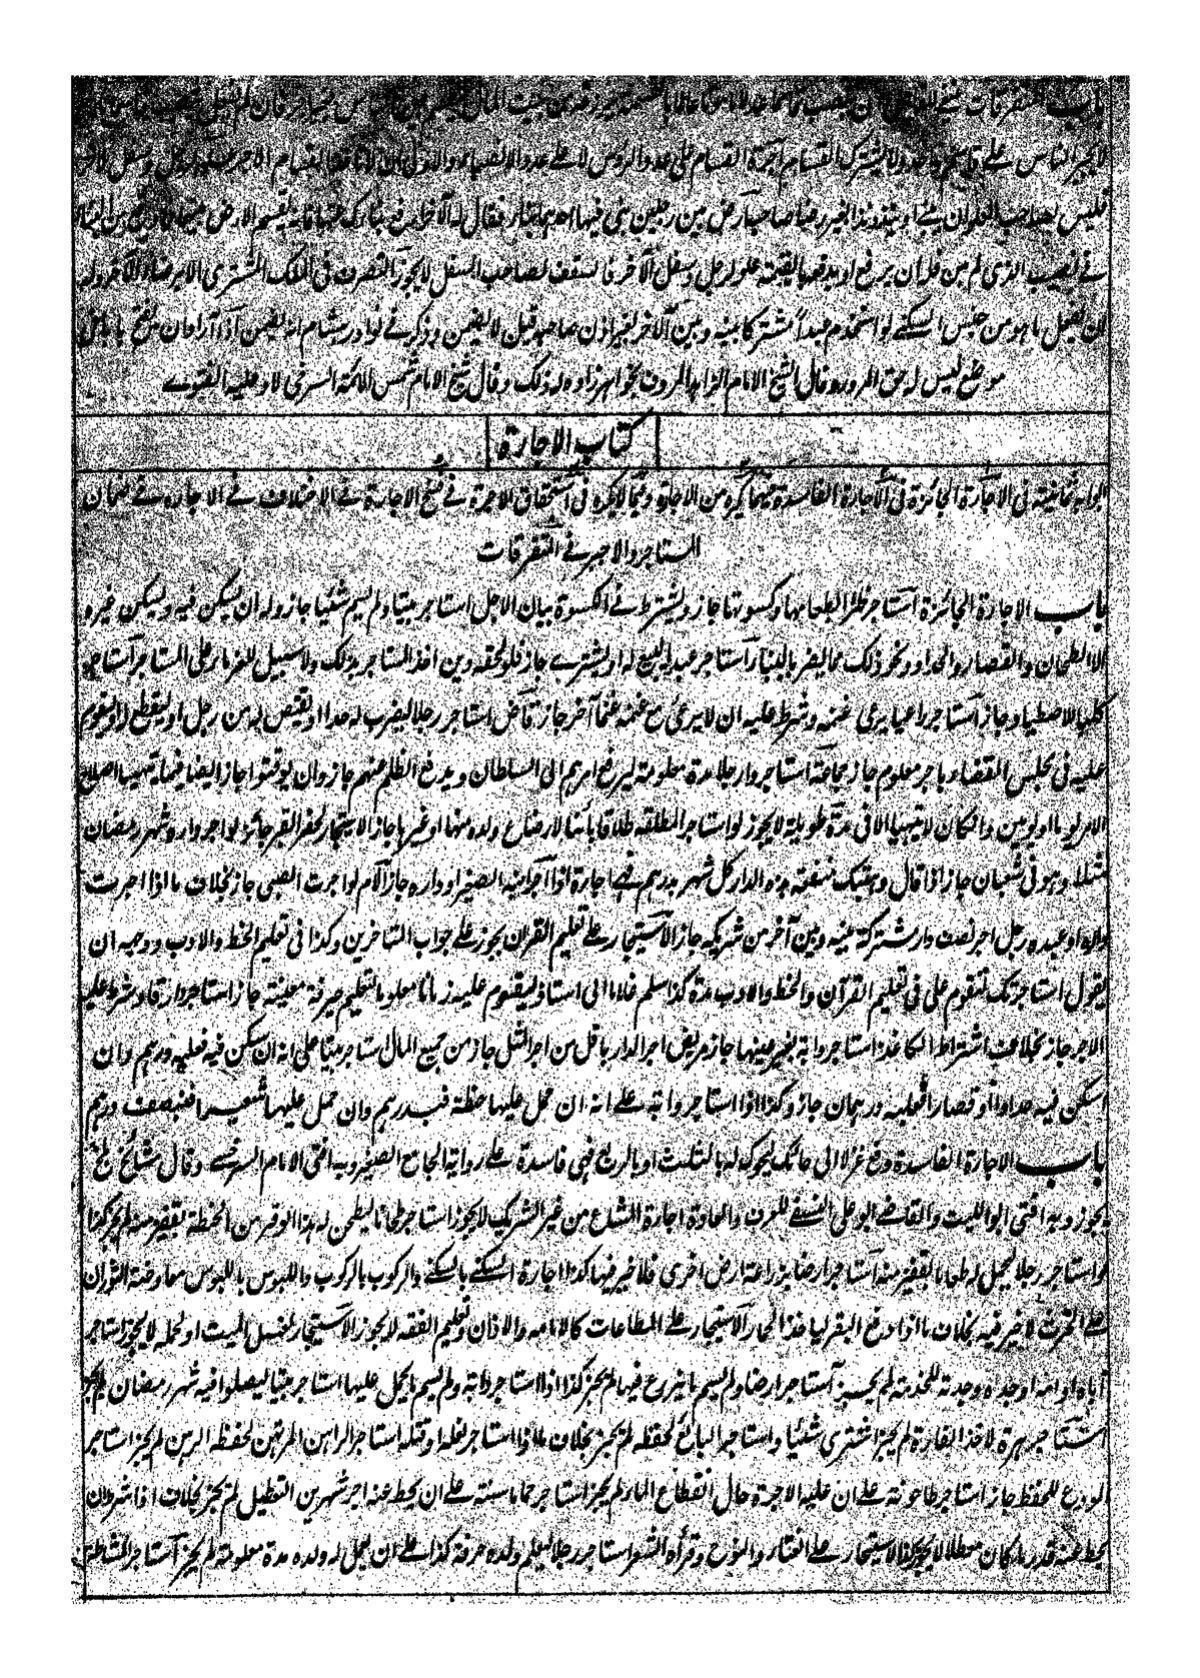 باب المتفرقات ينبغي للقاضي ان ينصب قاسما بيت المال
لا يجبر الناس على قاسم واحد ولا يشترك القسام اجرة القسام على عدد الرؤس لا على عدد الانصباء
فليس لصاحب العلو ان يبني بغير رضا صاحبه ارض بين رجلين بنى فيها احدهما بناء فقال له الآخر ارفع بناءك
في نصيب الذي لم يبن فله ان يرفع او يدفع القيمة علو لرجل وسفل لآخر فالسقف لصاحب السفل لا يجوز التصرف في الملك المشترك الا برضاء الآخر وله
ان يفعل ما هو من جنس السكنى لو استخدم عبدا مشتركا بينه وبين الآخر بغير اذن صاحبه قيل لا يضمن وذكر في نوادر هشام انه يضمن اذا اراد ان يفتح بابا في
موضع ليس له حق المرور قال الشيخ الامام الزاهد المعروف بخواهرزاده له ذلك وقال شيخ الامام شمس الائمة السرخسي لا وعليه الفتوى
كتاب الاجارة
ابوابه ثمانية في الاجارة الجائزة في الاجارة الفاسدة فيما يكره من الاجارة وفيما لا يكره في استحقاق الاجرة في فسخ الاجارة في الاختلاف في الاجاره في ضمان
المستاجر والاجير في المتفرقات
باب الاجارة الجائزة استاجر ظئرا بطعامها وكسوتها جاز ويشترط في الكسوة بيان الاجل استاجر بيتا ولم يسم شيئا جاز وله ان يسكن فيه ويسكن غيره
الا الطحان والقصار والحداد ونحو ذلك مما يضر بالبناء استاجر عبده للبيع له او يشترى جاز فلو لحقه دين اخذ المستاجر بذلك ولا سبيل للغرماء على المستاجر استاجر
كلبا للاصطياد جاز استاجر راعيا يرعى غنمه وشرط عليه ان لا يرعى مع غنمه غنما آخر جاز قاض استاجر رجلا ليضرب له حدا او يقتص له من رجل او ليقطع له او ليقوم
عليه في مجلس القضاء باجر معلوم جاز جماعة استاجروا رجلا مدة معلومة ليرفع امرهم الى السلطان ويدفع الظلم عنهم جاز وان لم يوقتوا جاز ايضا فيما يتهيأ اصلاح
الامر يوما او يومين وان كان لا يتهيأ الا في مدة طويلة لا يجوز لو استاجر المطلقه طلاقا بائنا لارضاع ولده منها او غيرها جاز الاستيجار لحفر القبر جائز لو اجر داره شهر رمضان
مثلا وهو في شعبان جاز اذا قال وهبتك منفعة هذه الدار كل شهر بدرهم فهي اجارة اذا اجر ابنه الصغير او داره جاز الام لو اجرت الصبى جاز بخلاف ما اذا اجرت
داره او عبده رجل اجر نصف دار مشتركة بينه وبين آخر من شريكه جاز الاستيجار على تعليم القرآن يجوز على جواب المتاخرين وكذا في تعليم الخط والادب ووجهه ان
يقول استاجرتك لتقوم على في تعليم القرآن والخط والادب مدة كذا اسلم غلاما الى استاذ ليقوم عليه زمانا معلوما بتعليم حرفة معينة جاز استاجر وراقا وشرط عليه
الحبر جاز بخلاف اشتراط الكاغذ استاجر دابة بغير عينها جاز مريض اجر الدار باقل من اجر المثل جاز من جميع المال استاجر بيتا على انه ان سكن فيه فعليه درهم وان
اسكن فيه حدادا او قصارا فعليه درهمان جاز وكذا اذا استاجر دابة على انه ان حمل عليها حنطة فبدرهم وان حمل عليها شعيرا فبنصف درهم
باب الاجارة الفاسدة دفع غزلا الى حائك ليحوكه لها بالثلث او بالربع فهي فاسدة على رواية الجامع الصغير وبه افتى الامام السرخسي وقال مشائخ بلخ
يجوز وبه افتى ابو الليث والقاضي ابو على النسفي للعرف والعادة اجارة المشاع من غير الشريك لا يجوز استاجر طحانا ليطحن له هذا الوقر من الحنطة بقفيز منه لم يجز كذا
لو استاجر رجلا ليحمل له طعاما بقفيز منه استاجر ارضا بزراعة ارض اخرى فلا خير فيها كذا اجارة السكنى بالسكنى والركوب بالركوب واللبوس باللبوس معاوضة الثيران
على الحرث لا خير فيه بخلاف ما اذا دفع البقر لياخذ الحمار الاستيجار على الطاعات كالامامه والاذان وتعليم الفقه لا يجوز الاستيجار لغسل الميت او لحمله لا يجوز استاجر
اباه او امه او جده وجدته للخدمة لم يجز استاجر ارضا ولم يسم ما يزرع فيها لم يجز كذا اذا استاجر دابة ولم يسم ما يحمل عليها استاجر بيتا ليصلوا فيه شهر رمضان لم يجز
استاجر هرة لاخذ الفارة لم يجز اشترى شيئا واستاجر البائع لحفظه لم يجز بخلاف ما اذا استاجر لغسله او قتله استاجر الراهن المرتهن لحفظ الرهن لم يجز استاجر
المودع للحفظ جاز استاجر طاحونة على ان عليه الاجرة حال انقطاع الماء لم يجز استاجر حماما سنة على ان يحط عنه اجر شهرين التعطيل لم يجز بخلاف اذا شرط ان
يحط عنه قدر ما كان معطلا لا يجوز الاستيجار على الغناء والنوح وقرأة الشعر استاجر رجلا ليعلم ولده حرفة كذا على ان يعمل له ولده مدة معلومة لم يجز استاجر الماشطة